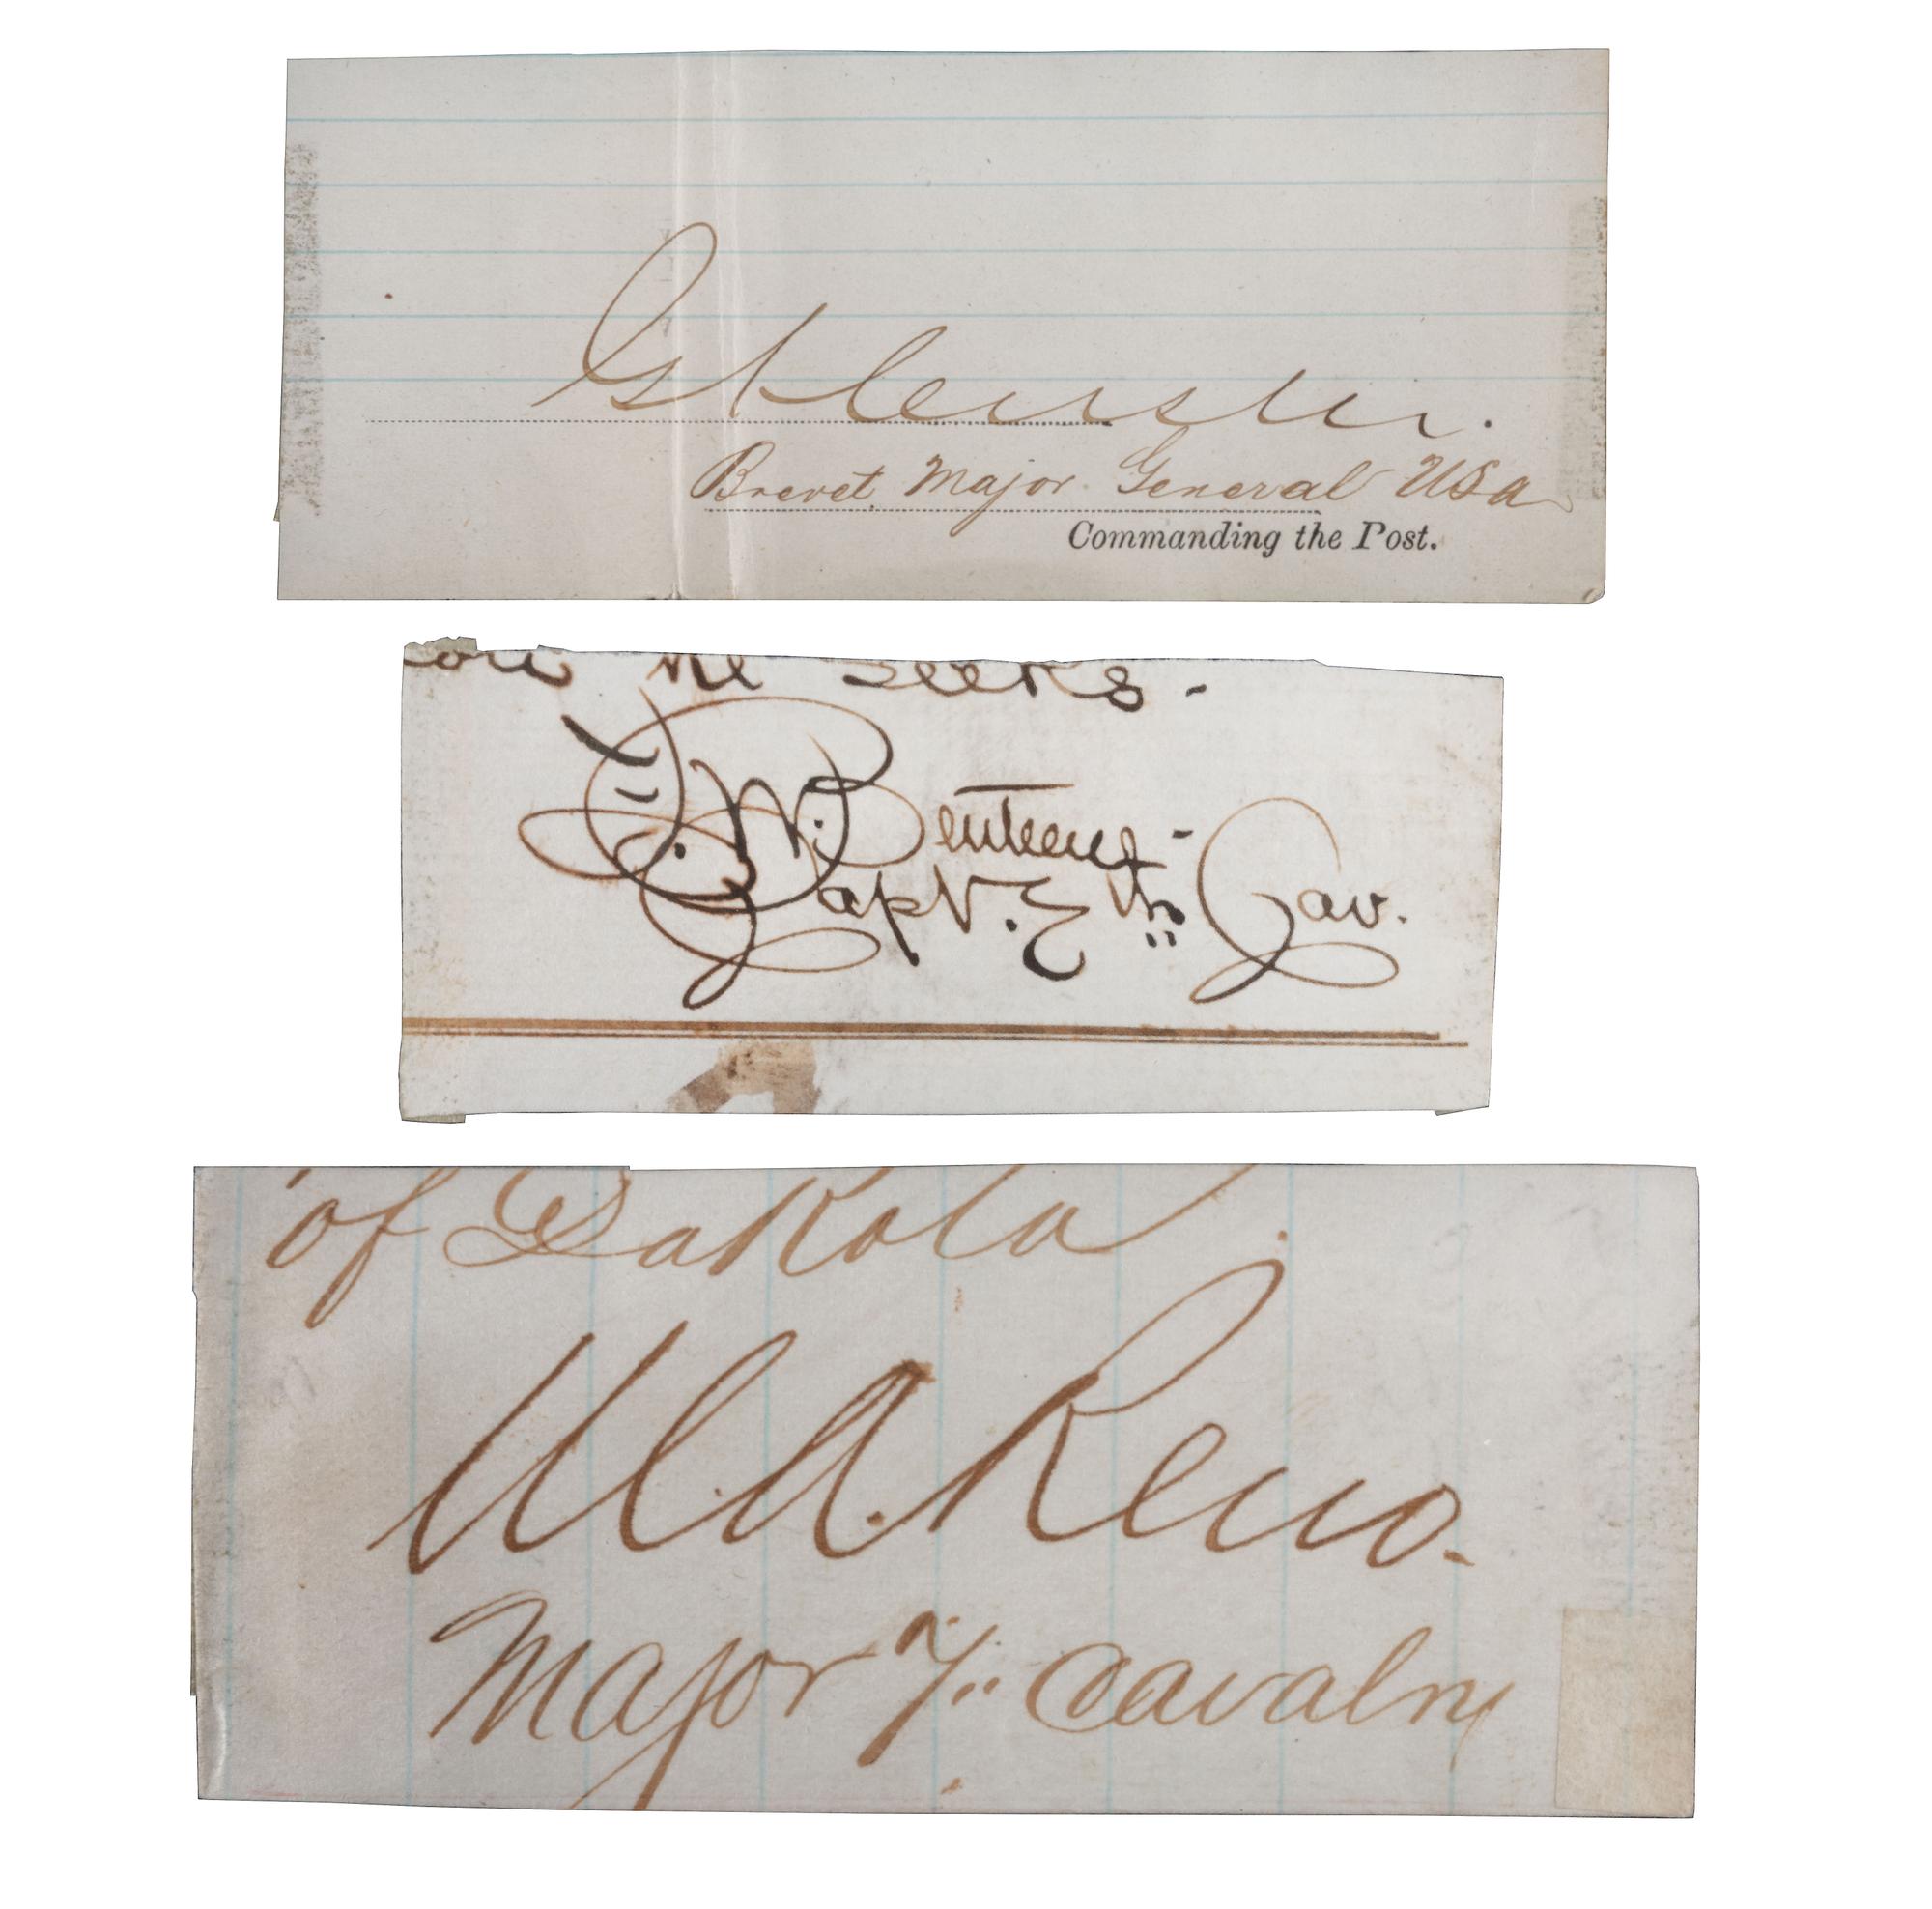 GACuster.
Brevet Major General USA
Commanding the Post.
he seeks -
F. W. Benteen -
Capt. & 7" Cav.
of Dakota.
M.A. Reno.
Major 7" Cavalry